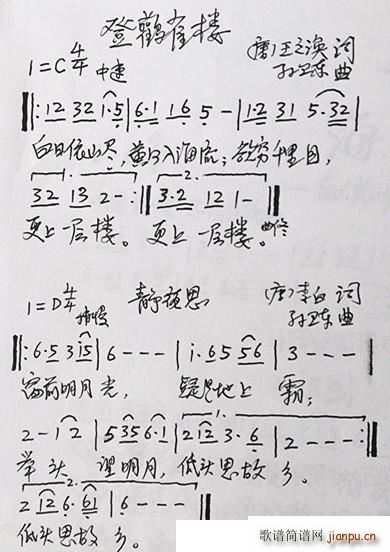 登鹳雀楼
1=C 4/4 中速
(唐)王之涣 词
孙卫东 曲
‖: 12 32 1·5 | 6·1 16 5 - | 1·2 31 5·32 |
白日依山尽,黄河入海流;欲穷千里目,
1. 32 13 2 - :‖ 2. 3·2 12 1 - ‖
更上一层楼。更上一层楼。曲终
静夜思
1=D 4/4 稍慢
(唐)李白 词
孙卫东 曲
‖: 6·5 3 i5 | 6 - - - | i·65 56 | 3 - - - |
窗前明月光,疑是地上霜;
2 - 1 2 | 5 35 6·1 | 1. 2 12 3·6 | 2 - - - :‖
举头 望明月,低头思故乡。
2. 2 12 6·61 | 6 - - - ‖
低头思故乡。
歌谱简谱网
jianpu.cn